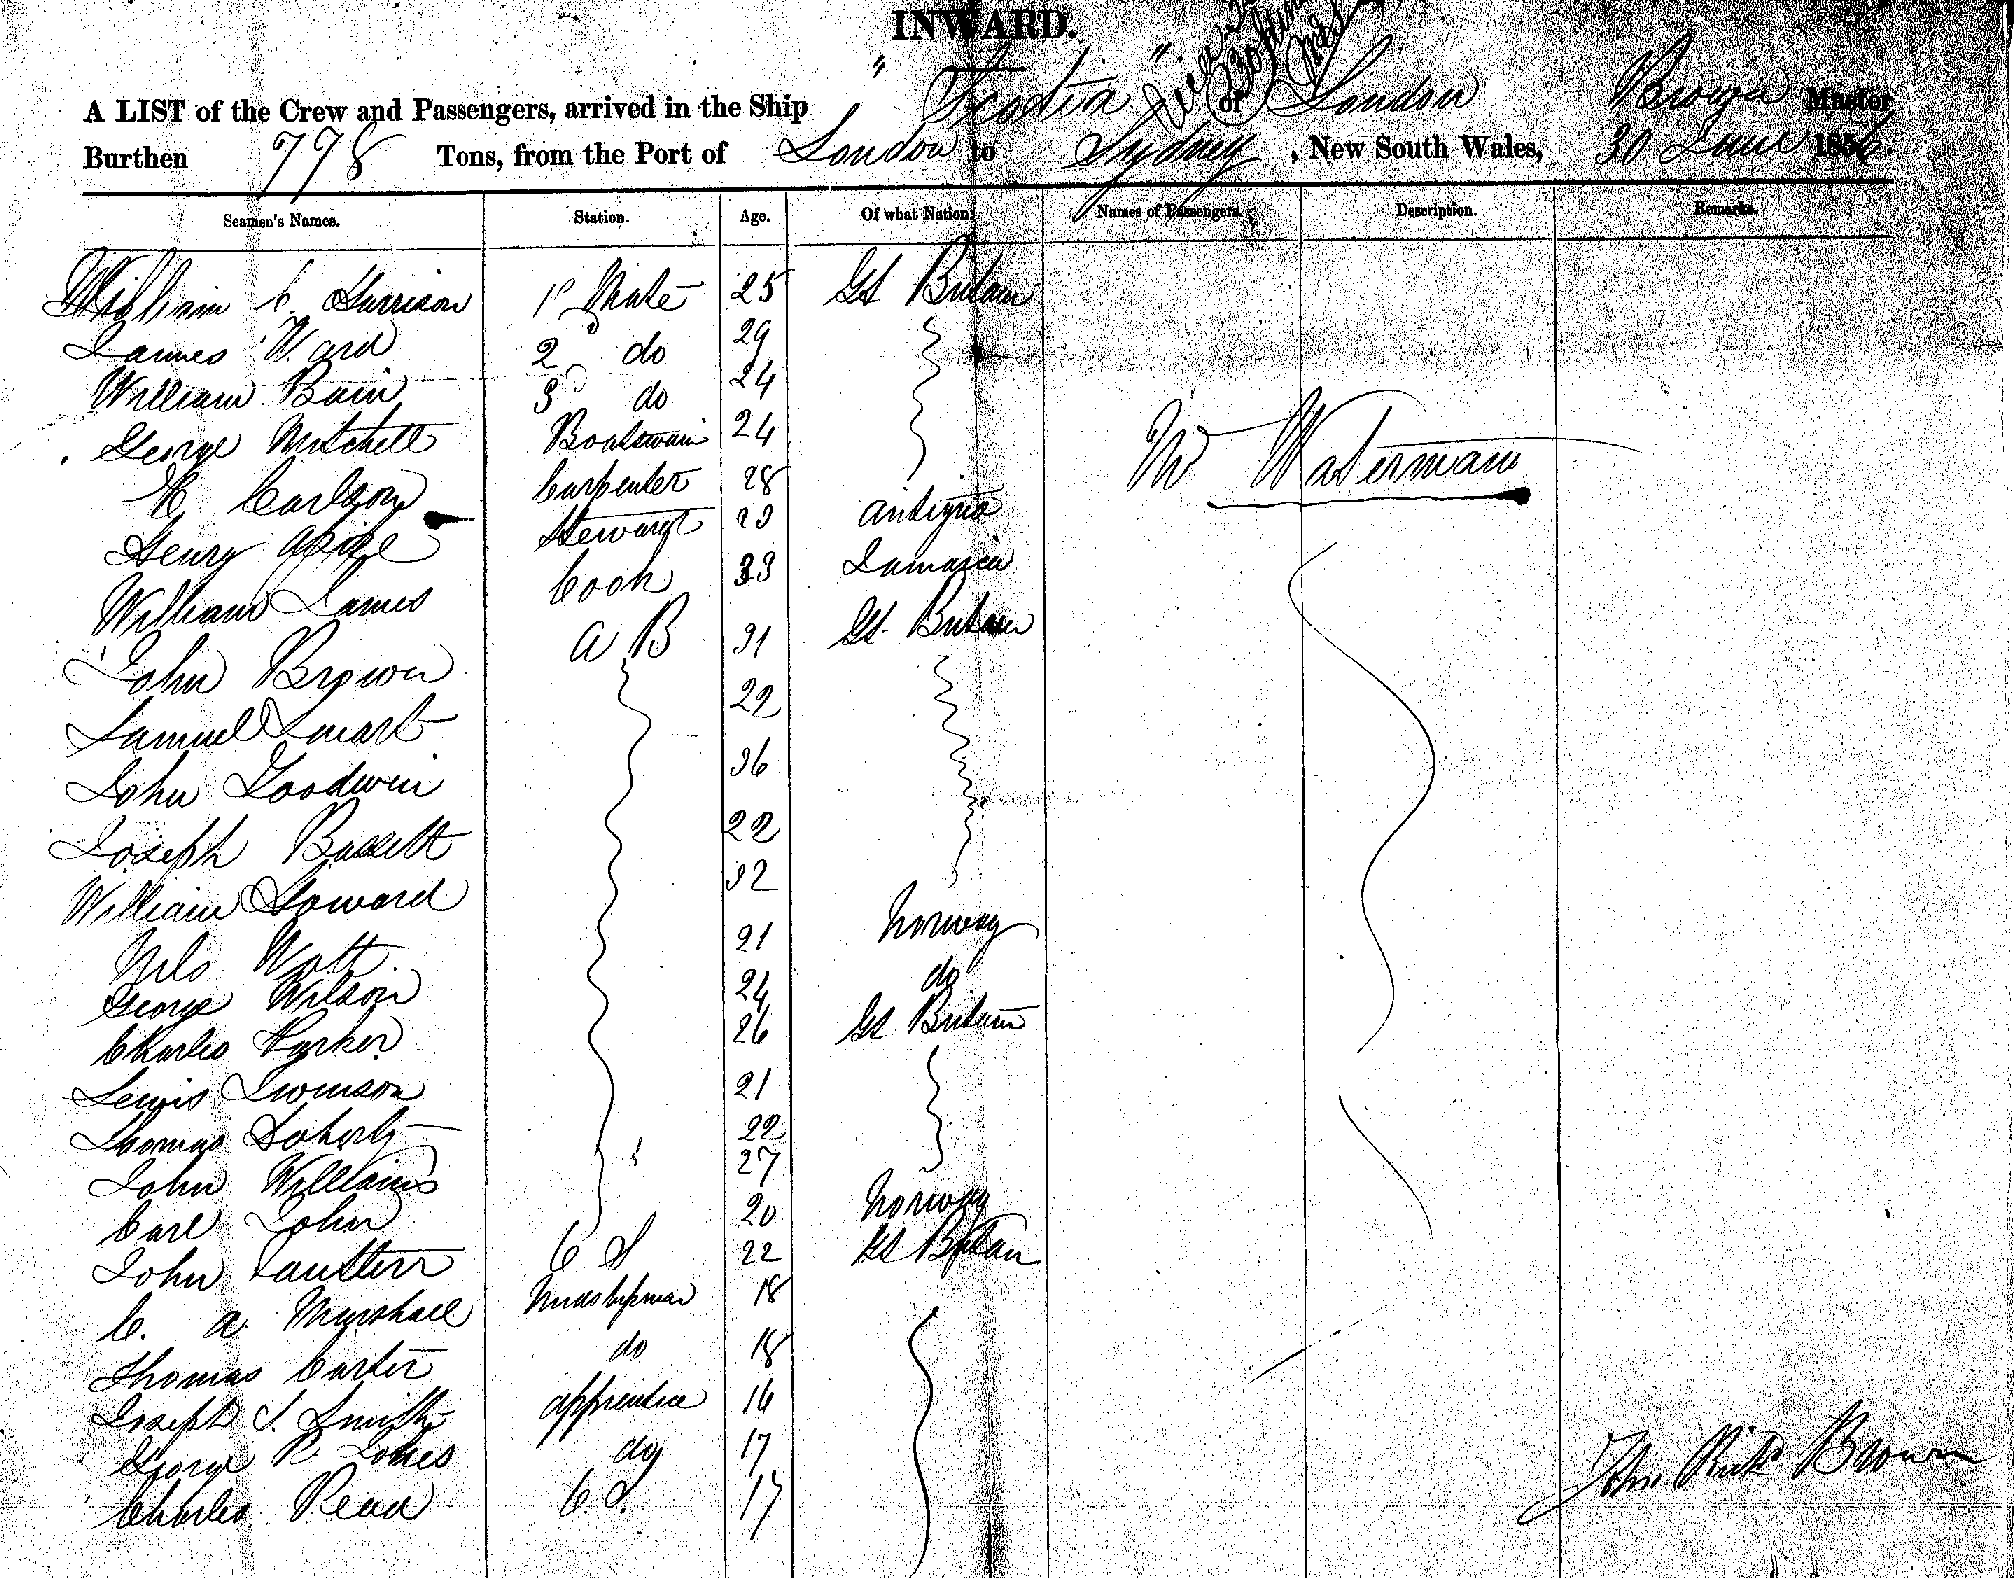 INWARD.
A LIST of the Crew and Passengers, arrived in the Ship " " of London Brown Master
Burthen 798 Tons, from the Port of London to Sydney, New South Wales, 30 June 1856
Seamen's Names. Station. Age. Of what Nation. Names of Passengers. Description. Remarks.
William C. Harrison 1st Mate 25 Gt Britain
James Ward 2 do 29
William Bain 3 do 24
George Mitchell Boatswain 24
Carlson Carpenter 28
Mr Waterman
Henry Steward Antigua
William James Cook 33 Jamaica
John Brown A B 31 Gt. Britain
Samuel Smart 22
John Goodwin 36
Joseph Bassett 22
William Howard 32
Nils Watt 21 Norway
George Wilson 24 do
Charles Parker 26 Gt Britain
Lewis Swinson 21
Thomas Doherty 22
John Williams 27
Carl John 20 Norway
John C S 22 Gt Britain
C. A Marshall Midshipman 18
Thomas Carter do 18
Joseph S. Smith apprentice 16
George R Jones do 17
Charles Read C S. 17
John Ricks Brown